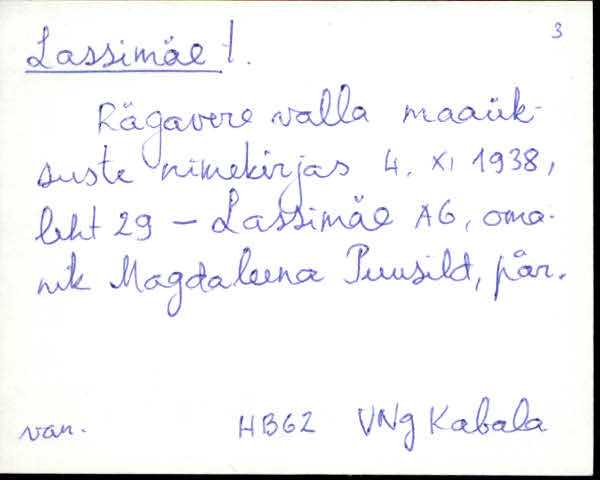 3
Lassimäe t.
Rägavere valla maaük-
suste nimekirjas 4. XI 1938,
leht 29 – Lassimäe A6, oma-
nik Magdaleena Puusild, pär.
van. HB62 VNg Kabala